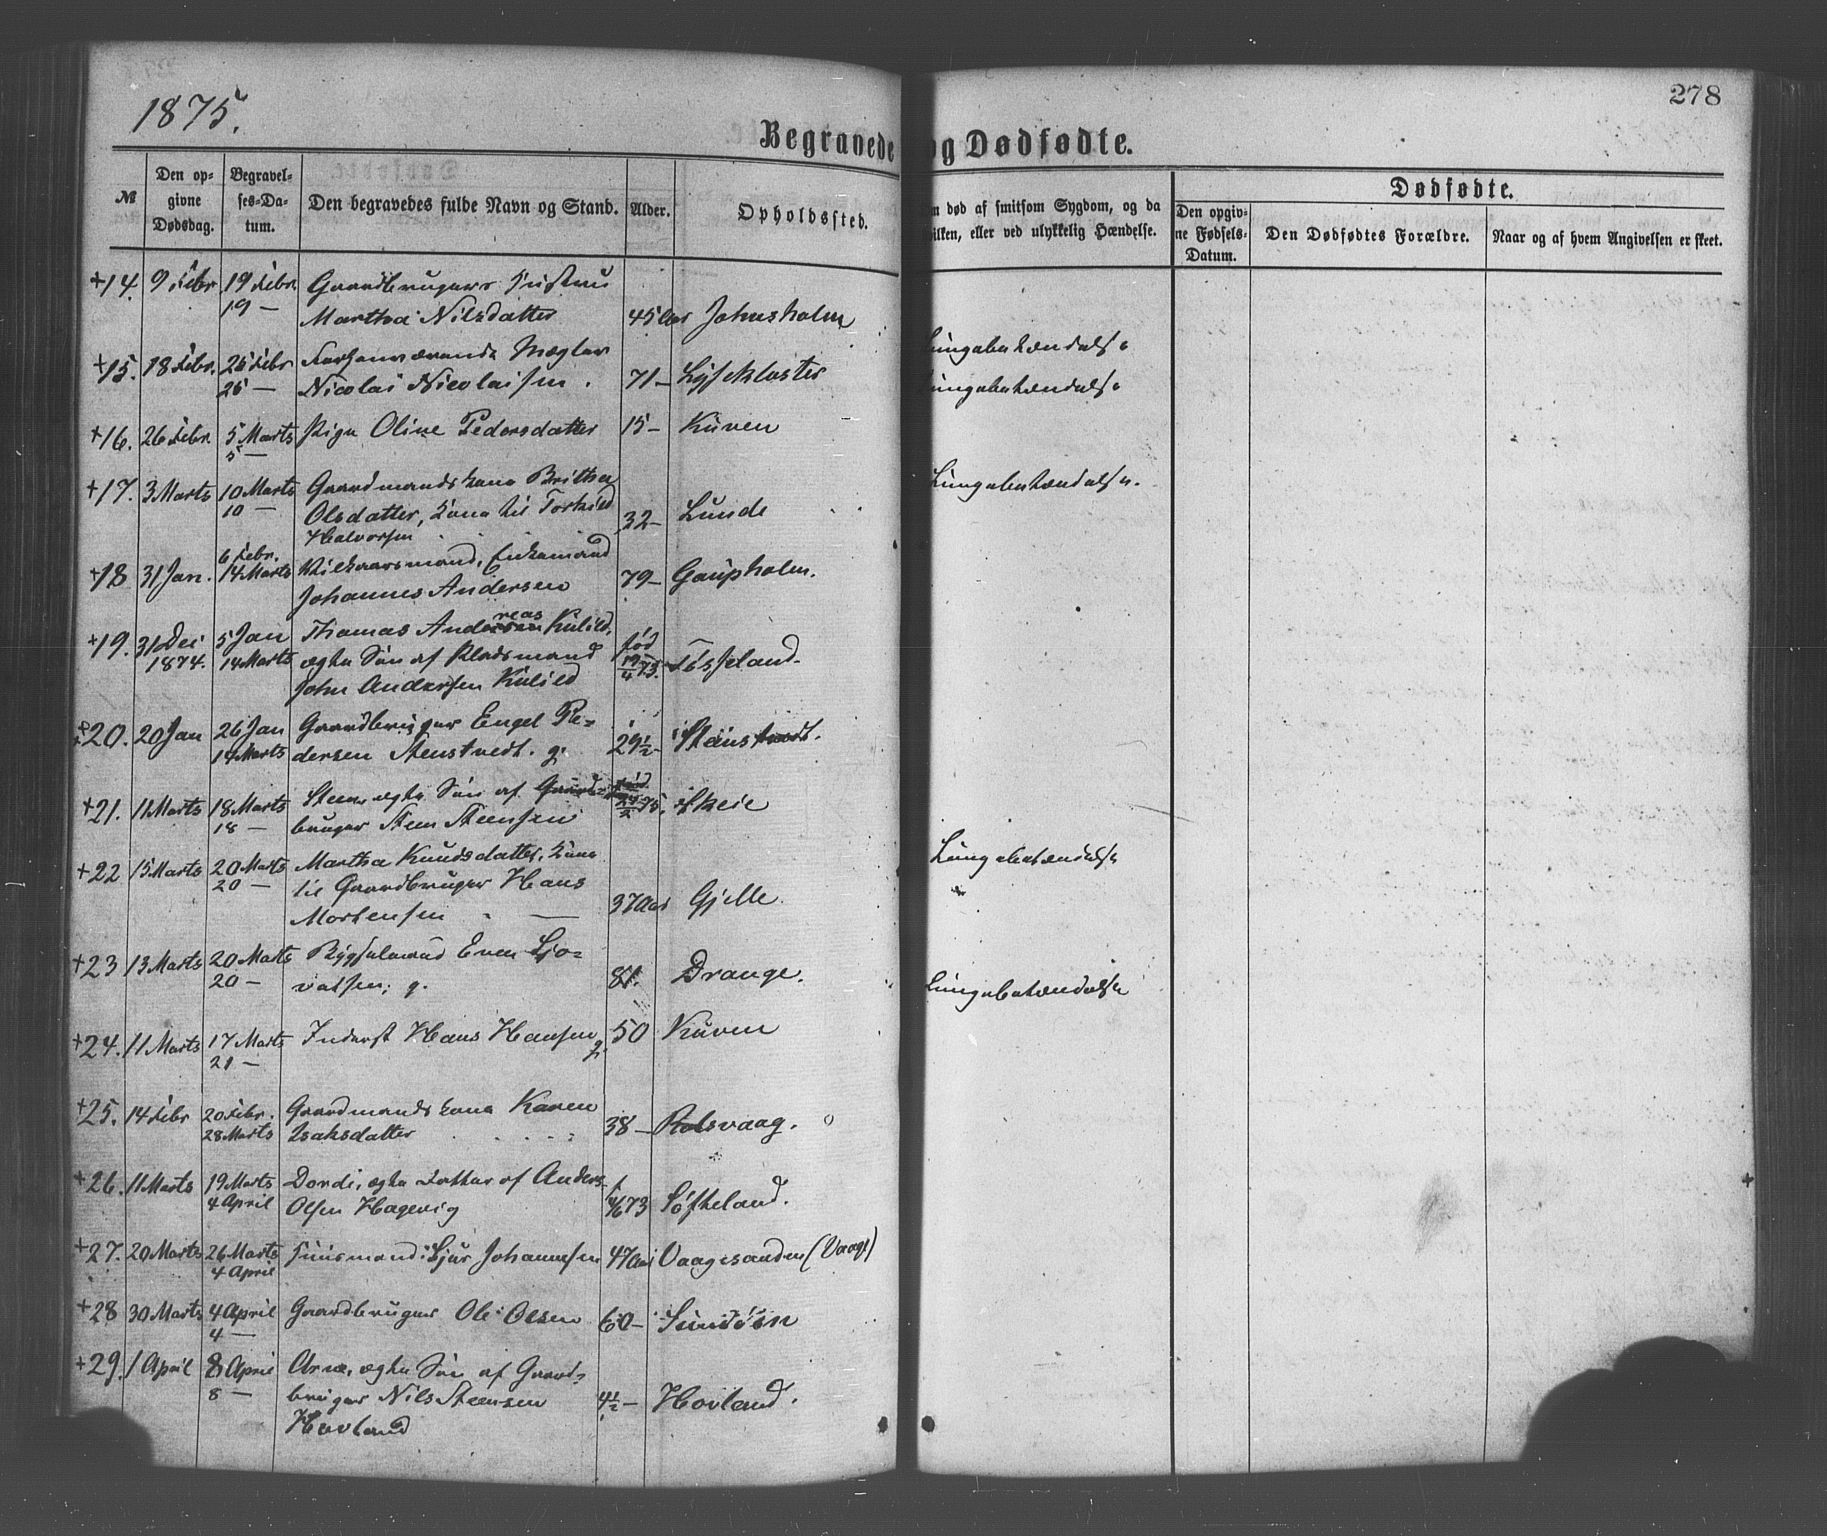 1875.
278
Begravede og Dødfødte.
№
Den opgivne Dødsdag.
Begravelses-Datum.
Den begravedes fulde Navn og Stand.
Alder.
Opholdssted.
død af smitsom Sygdom, og da
hvilken, eller ved ulykkelig Hændelse.
Dødfødte.
Den opgivne Fødsels-Datum.
Den Dødfødtes Forældre.
Naar og af hvem Angivelsen er skeet.
+14. 9 Febr 19 Febr. Gaardbrugers Hustru
19 — Martha Nilsdatter 45 Aar Johnsholm
+15. 18 Febr. 25 Febr Forhenværende Mægler Lungebetændelse
25 — Nicolai Nicolaisen. 71 – Lysekloster Lungebetændelse
+16. 26 Febr. 5 Marts Pige Oline Pedersdatter 15 – Kuven
5 —
+17. 3 Marts 10 Marts Gaardmandskone Britha Lungebetændelse.
10 — Olsdatter, Kone til Torkild 32 – Lunde
Halvorsen
6 Febr.
+18 31 Jan. 14 Marts Vilkaarsmand, Enkemand
Johannes Andersen 79 – Gaupholm.
+19. 31 Dec 5 Jan Thomas Andreas Kulild, fød
1874. 14 Marts ægte Søn af Pladsmand 19/4 73. Tøsseland.
John Andersen Kulild
+20. 20 Jan 26 Jan Gaardbruger Engel Pe-
14 Marts dersen Stenstvedt. g. 29½ – Stenstvedt.
+21. 11 Marts 18 Marts Steen, ægte Søn af Gaard- fød 75. Skeie
18 — bruger Steen Steensen
+22 15 Marts 20 Marts Martha Knudsdatter, Kone Lungebetændelse
20 — til Gaardbruger Hans
Mortensen — 37 Aar Gjelle.
+23 13 Marts 20 Marts Bygselmand Even Sjo-
20 — vatsen, g. 81. Drange. Lungebetændelse
+24. 11 Marts 17 Marts Inderst Hans Hansen g. 50 Kuven
21 —
+25. 14 Febr 20 Febr. Gaardmandskone Karen
28 Marts Isaksdatter 38 – Rolsvaag.
+26. 11 Marts 19 Marts Dordi, ægte Datter af Anders f.
4 April Olsen Hagevig 4/6 73 Søfteland.
+27. 20 Marts 26 Marts Huusmand Sjur Johannesen 47 Aar Vaagesanden (Vaage)
4 April
+28 30 Marts 4 April Gaardbruger Ole Olsen 60 – Sundøen
4 —
+29. 1 April 8 April Arne, ægte Søn af Gaard-
8 — bruger Nils Steensen 4½ – Hovland.
Hovland